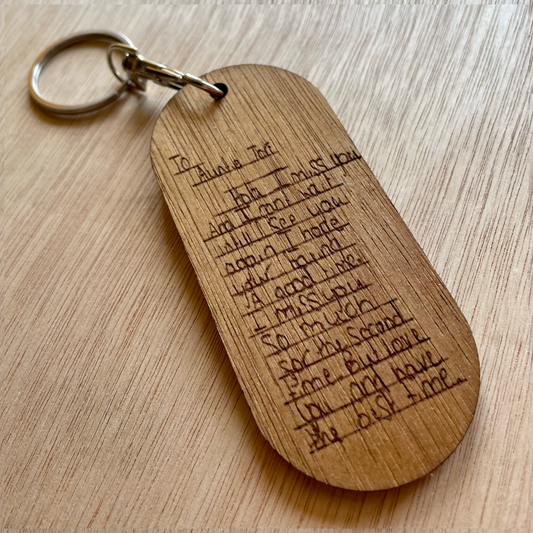 To
Auntie Tor
Hola I miss you
And I cant wait
until I see you
again I hope
your having
A good time
I miss you
So much
for the second
time But love
you and have
the best time.